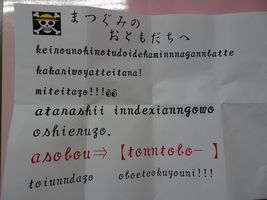 まつぐみの
おともだちへ
keirounohinotudoidehaminnnagannbatte
kakariwoyatteitana!
miteitazo!!!
atarashii inndexianngowo
oshieruzo.
asobou⇒【tonntobo-】
toiunndazo oboeteokuyouni!!!